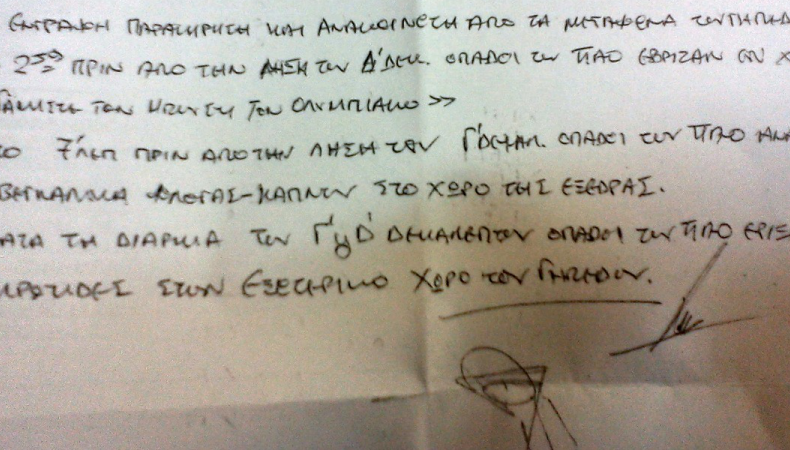 ΕΓΓΡΑΦΗ ΠΑΡΑΤΗΡΗΣΗ ΚΑΙ ΑΝΑΚΟΙΝΩΣΗ ΑΠΟ ΤΑ ΜΕΓΑΦΩΝΑ ΤΟΥ
ΠΡΙΝ ΑΠΟ ΤΗΝ ΛΗΞΗ ΤΟΥ Δ' ΔΕΚ. ΟΠΑΔΟΙ ΤΟΥ ΠΑΟ ΕΒΡΙΖΑΝ ΕΝ Χ
ΤΟΝ ΤΟΥ ΟΛΥΜΠΙΑΚΟ >>
ΤΟ 7 ΛΕΠ ΠΡΙΝ ΑΠΟ ΤΗΝ ΛΗΞΗ ΤΟΥ Γ' ΟΠΑΔΟΙ ΤΟΥ ΠΑΟ ΑΝΑ
ΒΕΓΓΑΛΙΚΑ ΦΛΟΓΑΣ-ΚΑΠΝΟΥ ΣΤΟ ΧΩΡΟ ΤΗΣ ΕΞΕΔΡΑΣ.
ΑΤΑ ΤΗ ΔΙΑΡΚΙΑ ΤΟΥ Γ' & Δ' ΔΕΚΑΛΕΠΤΟΥ ΟΠΑΔΟΙ ΤΟΥ ΠΑΟ ΕΡΙΞ
ΚΡΟΤΙΔΕΣ ΣΤΟΝ ΕΞΩΤΕΡΙΚΟ ΧΩΡΟ ΤΟΥ ΓΗΠΕΔΟΥ.